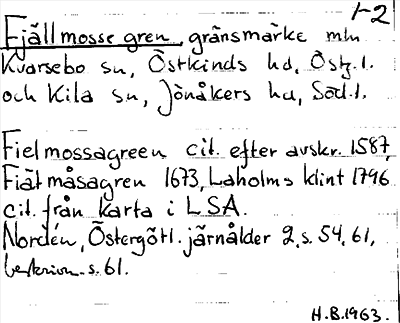 1-2
Fjällmossegren, gränsmärke mln
Kvarsebo sn, Östkinds hd, Östg.l.
och Kila sn, Jönåkers hd, Söd.l.
Fielmossagreen cit. efter avskr. 1587,
Fiätmåsagren 1673, Laholms klint 1796
cit. från karta i LSA.
Nordén, Östergötl. järnålder 2, s. 54, 61,
beskrivn. s. 61.
H.B. 1963.